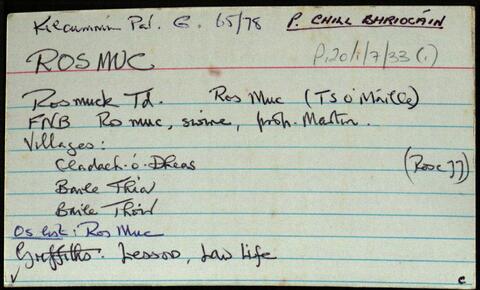 Kilcummin Par. G. 65/78 P. CHILL BHRIOCÁIN
ROS MUC P.20/1/7/33 (1)
Rosmuck Td. Ros Muc (T S Ó Máille)
FNB Ros muc, swine, proh. Martin.
Villages:
Cladach ó Dheas (Rosc 77)
Baile Thiar
Baile Thoir
OS list: Ros Muc
Griffiths: Lessor, Law Life